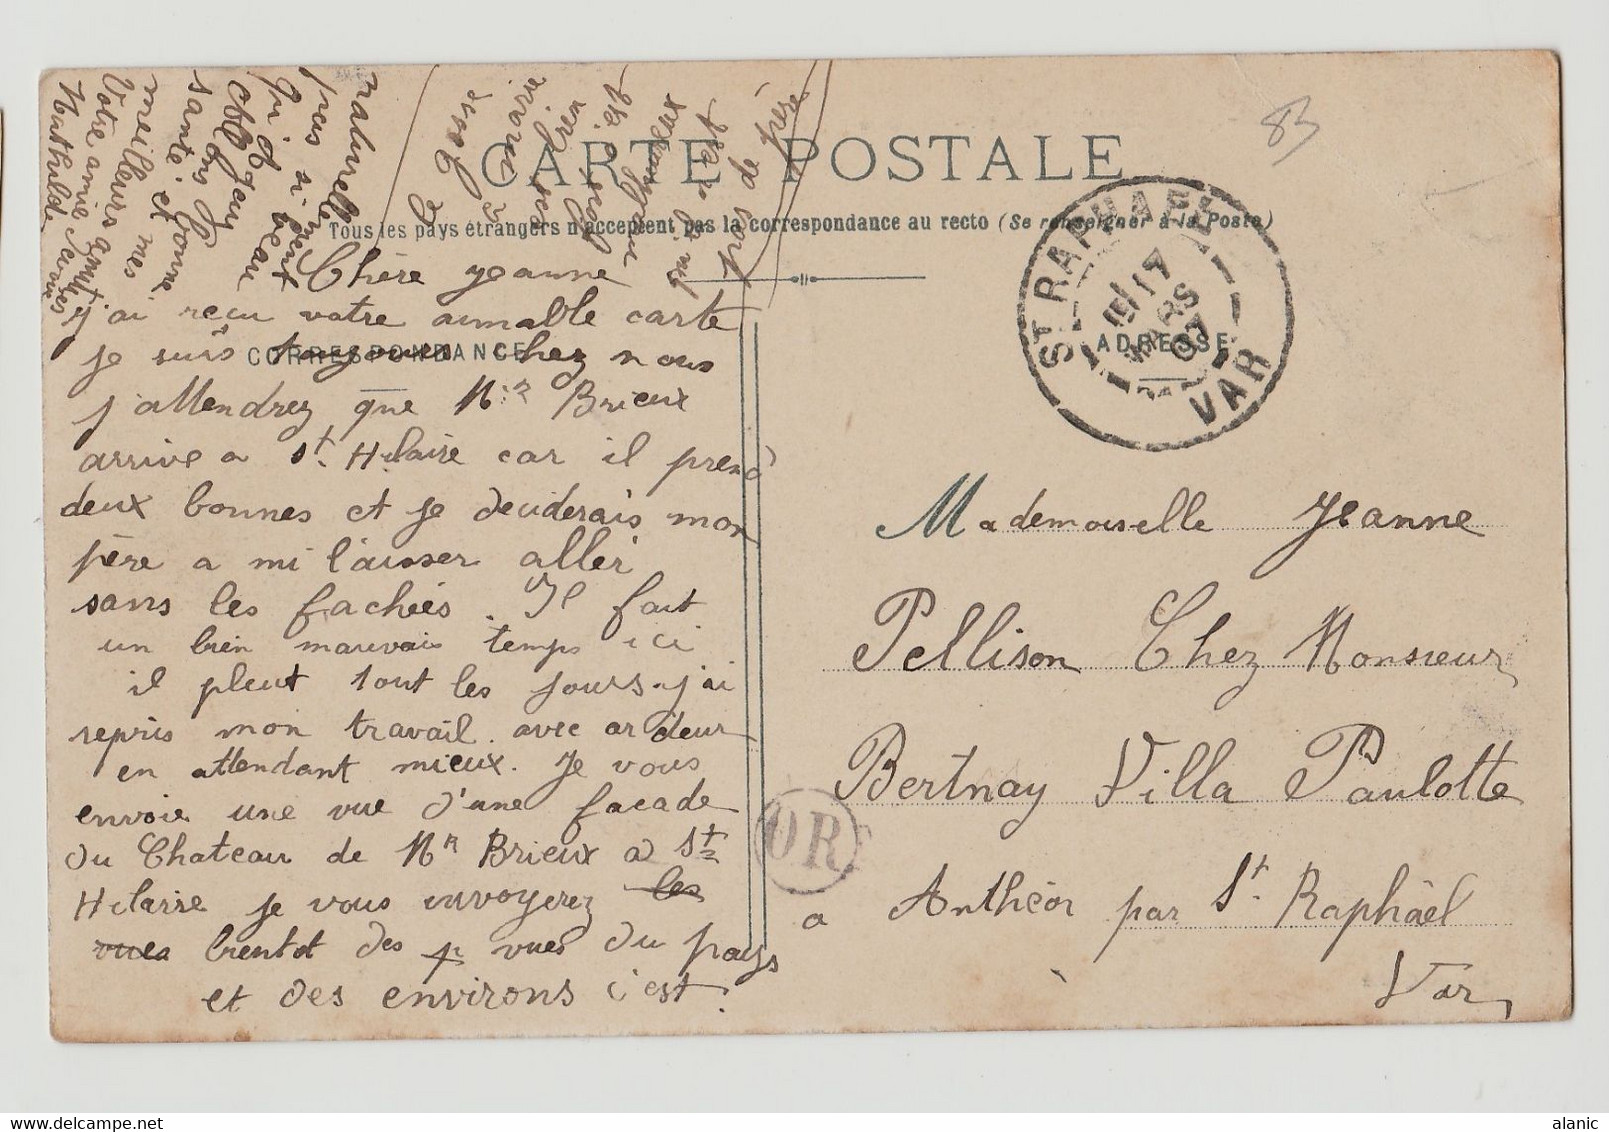 CARTE POSTALE
Tous les pays étrangers n'acceptent pas la correspondance au recto (Se renseigner à la Poste)
CORRESPONDANCE
ADRESSE
83
ST RAPHAEL
17
MARS
07
VAR
OR
Chère Jeanne
j'ai recu votre aimable carte
je suis toujours chez nous
j'attendrez que Mr Brieux
arrive a St. Hilaire car il prend
deux bonnes et je deciderais mon
père a mi laisser aller
sans les fachées. Il fait
un bien mauvais temps ici
il pleut tout les jours. j'ai
repris mon travail. avec ardeur
en attendant mieux. Je vous
envoie une vue d'une facade
du Chateau de Mr Brieux a St
Hilaire je vous envoyerez les
vues bientot des vues du pays
et des environs c'est
naturellement
pas si beau
qu'a Agay
santé. bonne
et mes
meilleurs amitiés
Votre amie
Mathilde
Mademoiselle Jeanne
Pellison Chez Monsieur
Bertnay Villa Paulotte
a Anthéor par St. Raphaël
Var
alanic